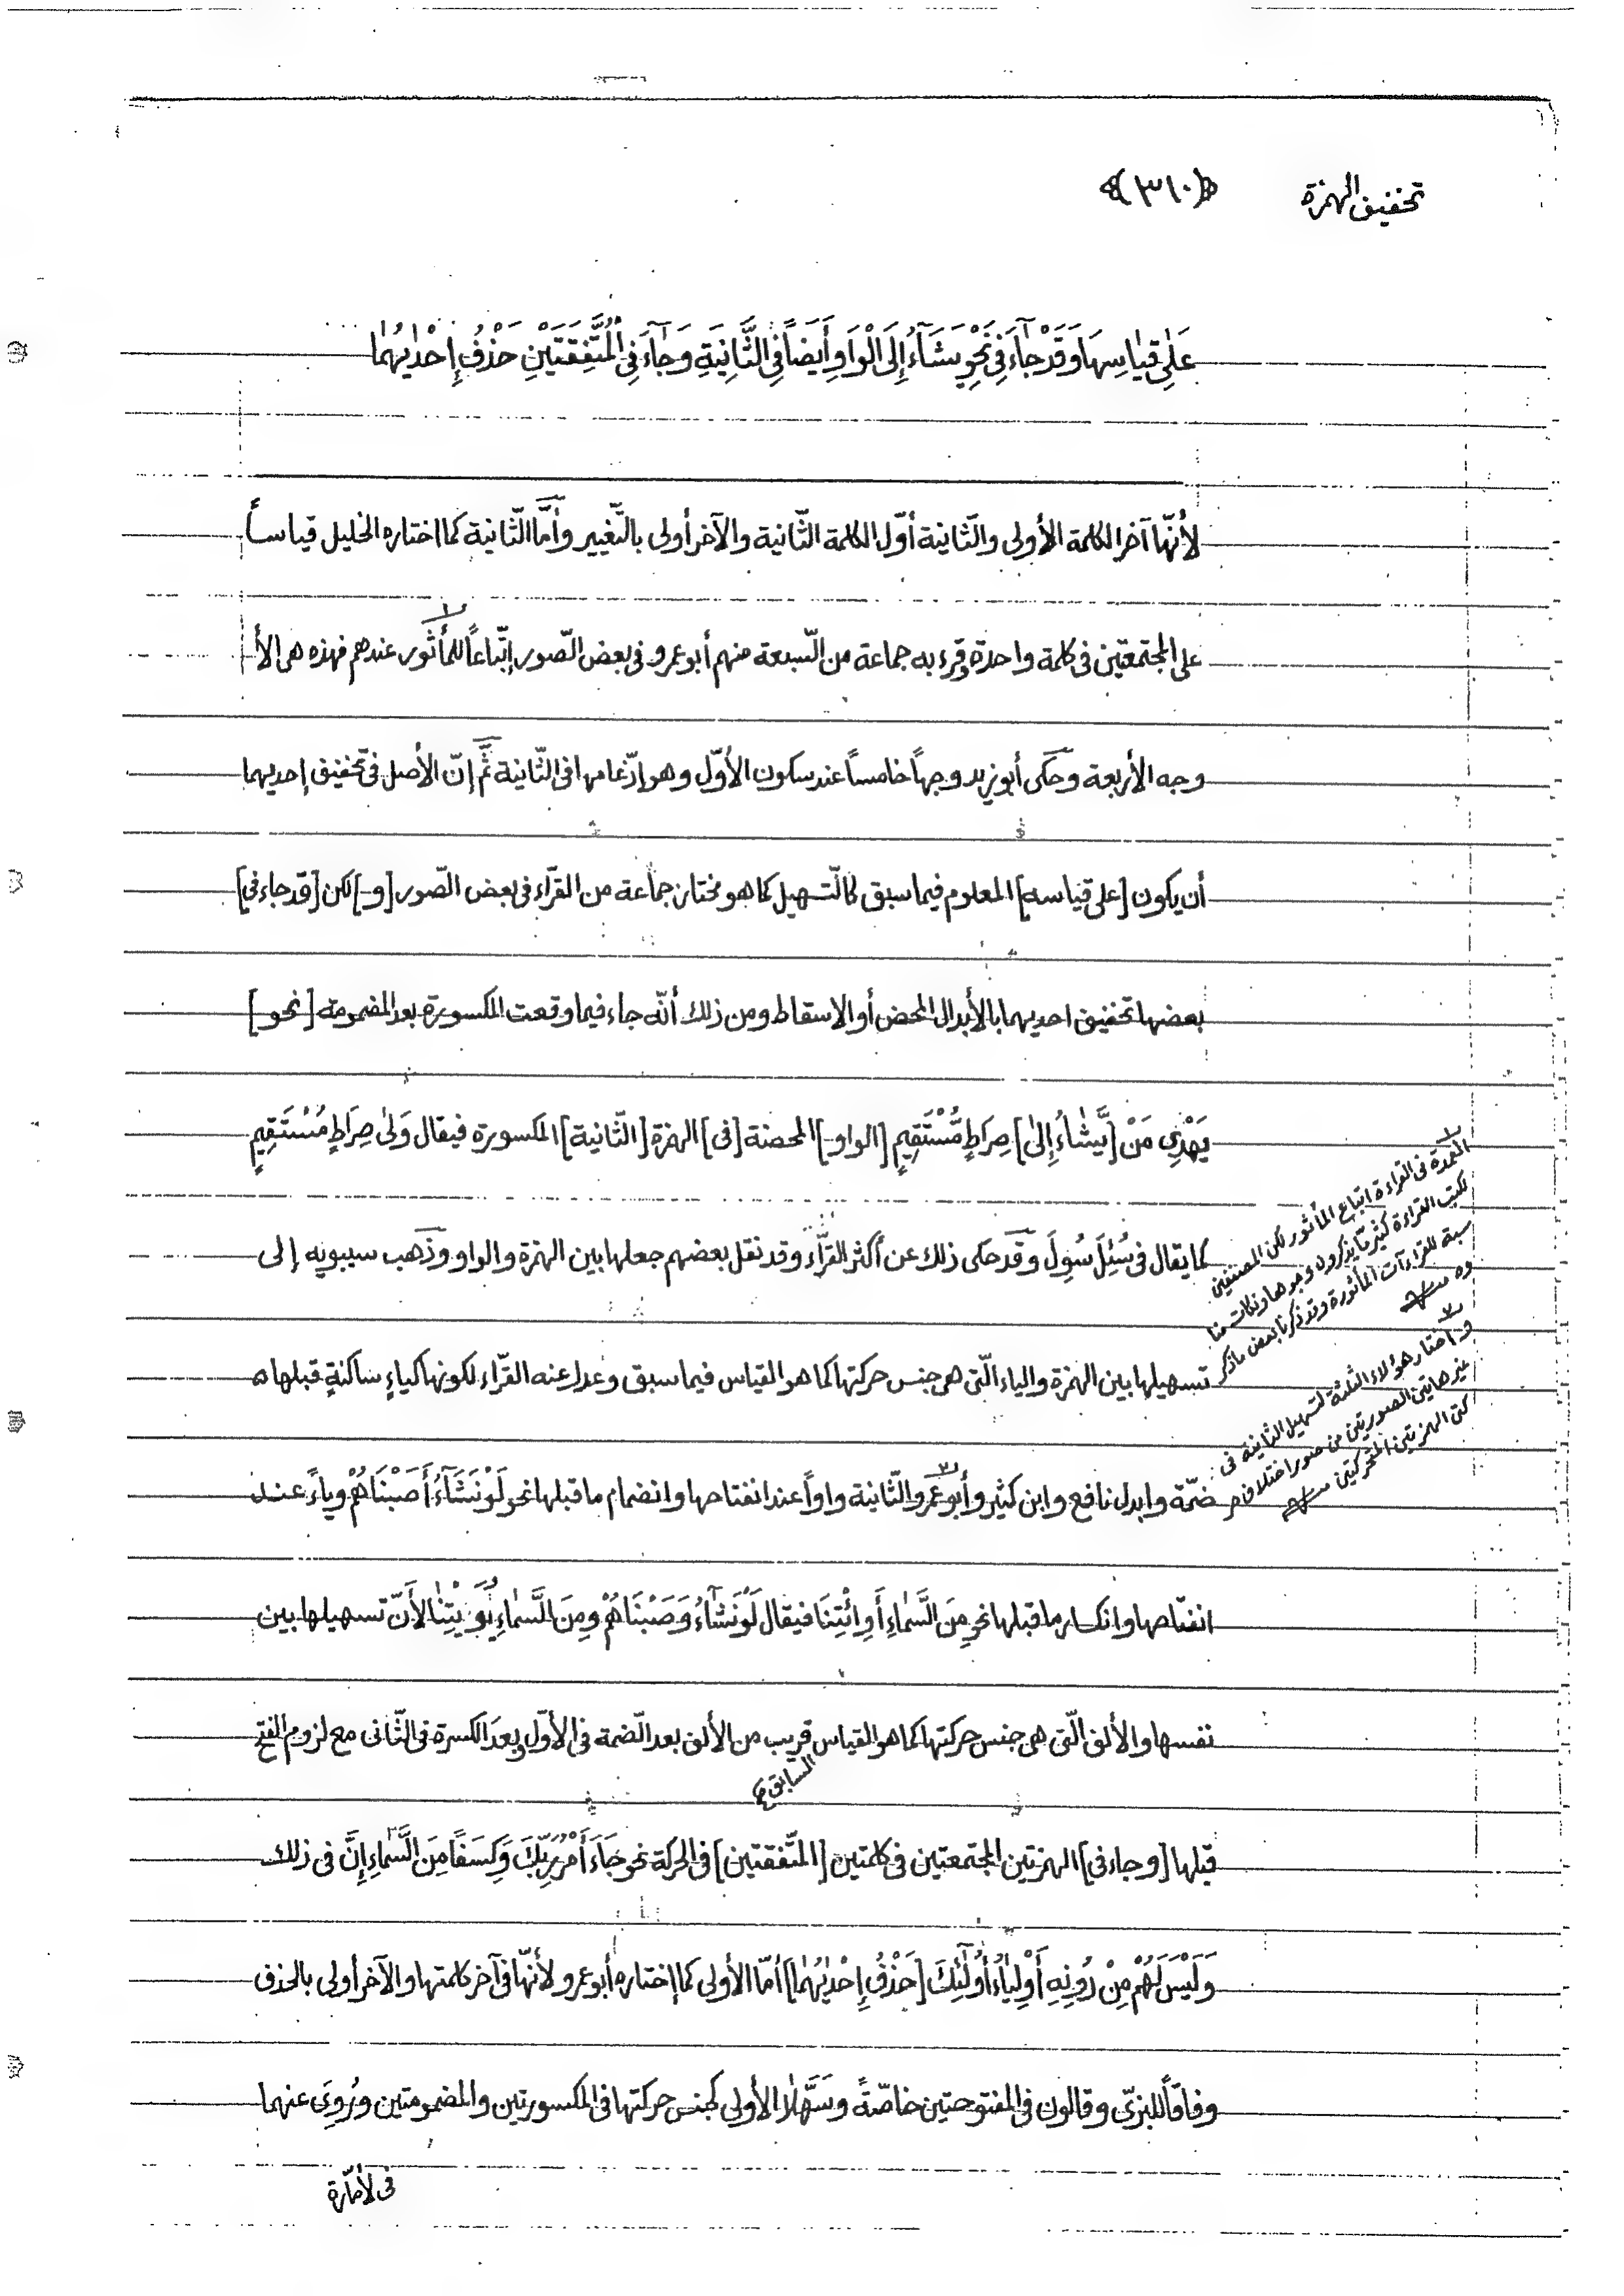 تخفيف الهمزة
﴿٣١٠﴾
عَلٰى قِيٰاسِهَا وَقَدْ جٰآءَ فِى نَحْوِ يَشَآءُ إِلَى الْوَاوِ أَيْضَاً فِى الثَّانِيَةِ وَجٰآءَ فِى الْمُتَّفِقَتَيْنِ حَذْفُ إِحْدٰيهُمٰا
لأنّها آخر الكلمة الأولى والثّانية أوّل الكلمة الثّانية والآخر أولى بالتّغيير وأمّا الثّانية كما اختاره الخليل قياساً
على المجتمعتين فى كلمة واحدة وقرء به جماعة من السّبعة منهم أبوعمرو فى بعض الصّور إتّباعاً للمأثور ١ عندهم فهذه هى الأ
وجه الأربعة وحكى أبوزيد وجهاً خامساً عند سكون الأوّل وهو إدّغامها فى الثّانية ثمّ إنّ الأصل فى تخفيف إحديهما
أن يكون [على قياسه] المعلوم فيما سبق كالتّسهيل كما هو مختار جماعة من القرّاء فى بعض الصّور [و] لكن [قد جاء فى]
بعضها تخفيف احديهما بالأبدال المحض أو الاسقاط ومن ذلك أنّه جاء فيما وقعت المكسورة بعد المضمومة [نحو]
يَهْدِى مَنْ [يَّشٰاءُ إِلىٰ] صِرَاطٍ مُّسْتَقِيمٍ [الواو] المحضة [فى] الهمزة [الثّانية] المكسورة فيقال وَلىٰ صِرَاطٍ مُسْتَقِيمٍ
كما يقال فى سُئِلَ سُوِلَ وقد حكى ذلك عن أكثر القرّاء وقد نقل بعضهم جعلها بين الهمزة والواو وذهب سيبويه إلى
تسهيلها بين الهمزة والياء الّتى هى جنس حركتها كما هو القياس فيما سبق وعدل عنه القرّاء لكونها كياءٍ ساكنةٍ قبلها
ضمّة وابدل نافع وابن كثير وأبوعمرو ٢ الثّانية واواً عند انفتاحها وانضمام ما قبلها نحو لَوْ نَشَآءُ أَصَبْنَاهُمْ وياءً عند
انفتاحها وانكسار ما قبلها نحو مِنَ السَّمٰاءِ أَوِ ائْتِنَا فيقال لَوْ نَشٰآءُ وَصَبْنَاهُمْ ومِنَ السَّمٰاءِ يَوِ يتِنٰا لأنّ تسهيلها بين
نفسها والألف الّتى هى جنس حركتها كما هو القياس قريب من الألف بعد الضّمة فى الأوّل وبعد الكسرة فى الثّانى مع لزوم الفتح
السابق
قبلها [وجاء فى] الهمزتين المجتمعتين فى كلمتين [المتّفقتين] فى الحركة نحو جَآءَ أَمْرُ رَبِّكَ وَكِسَفًا مِنَ السَّمٰاءِ إِنَّ فى ذلك
وَلَيْسَ لَهُمْ مِنْ دُونِهِ أَوْلِيٰاءُ أُولٰٓئِكَ [حَذْفُ إِحْدٰيهُمٰا] أمّا الأولى كما إختاره أبوعمرو لأنّها فى آخر كلمتها والآخر أولى بالحذف
وفاقاً للبزّى وقالون فى المفتوحتين خاصّةً وسَهَّلاٰ الأولى كجنس حركتها فى المكسورتين والمضمومتين ورُوِىَ عنهما
١ العمدة فى القراءة اتباع المأثور لكن المصنفين
لكتب القراءة كثيرمّا يذكرون وجوها ونكات منا
سبة للقراءآت المأثورة وقد ذكرنا بعض ما ذكر
وه
٢ واختار هؤلاء الثلثة تسهيل الثانية فى
غير هاتين الصورتين من صور اختلاف حر
كتى الهمزتين المتحركتين